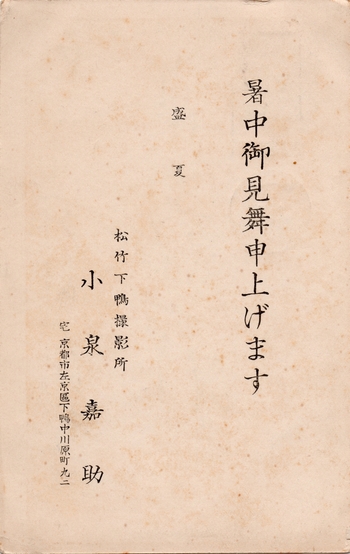 暑中御見舞申上げます
盛夏
松竹下鴨撮影所
小泉嘉助
宅 京都市左京區下鴨中川原町九二